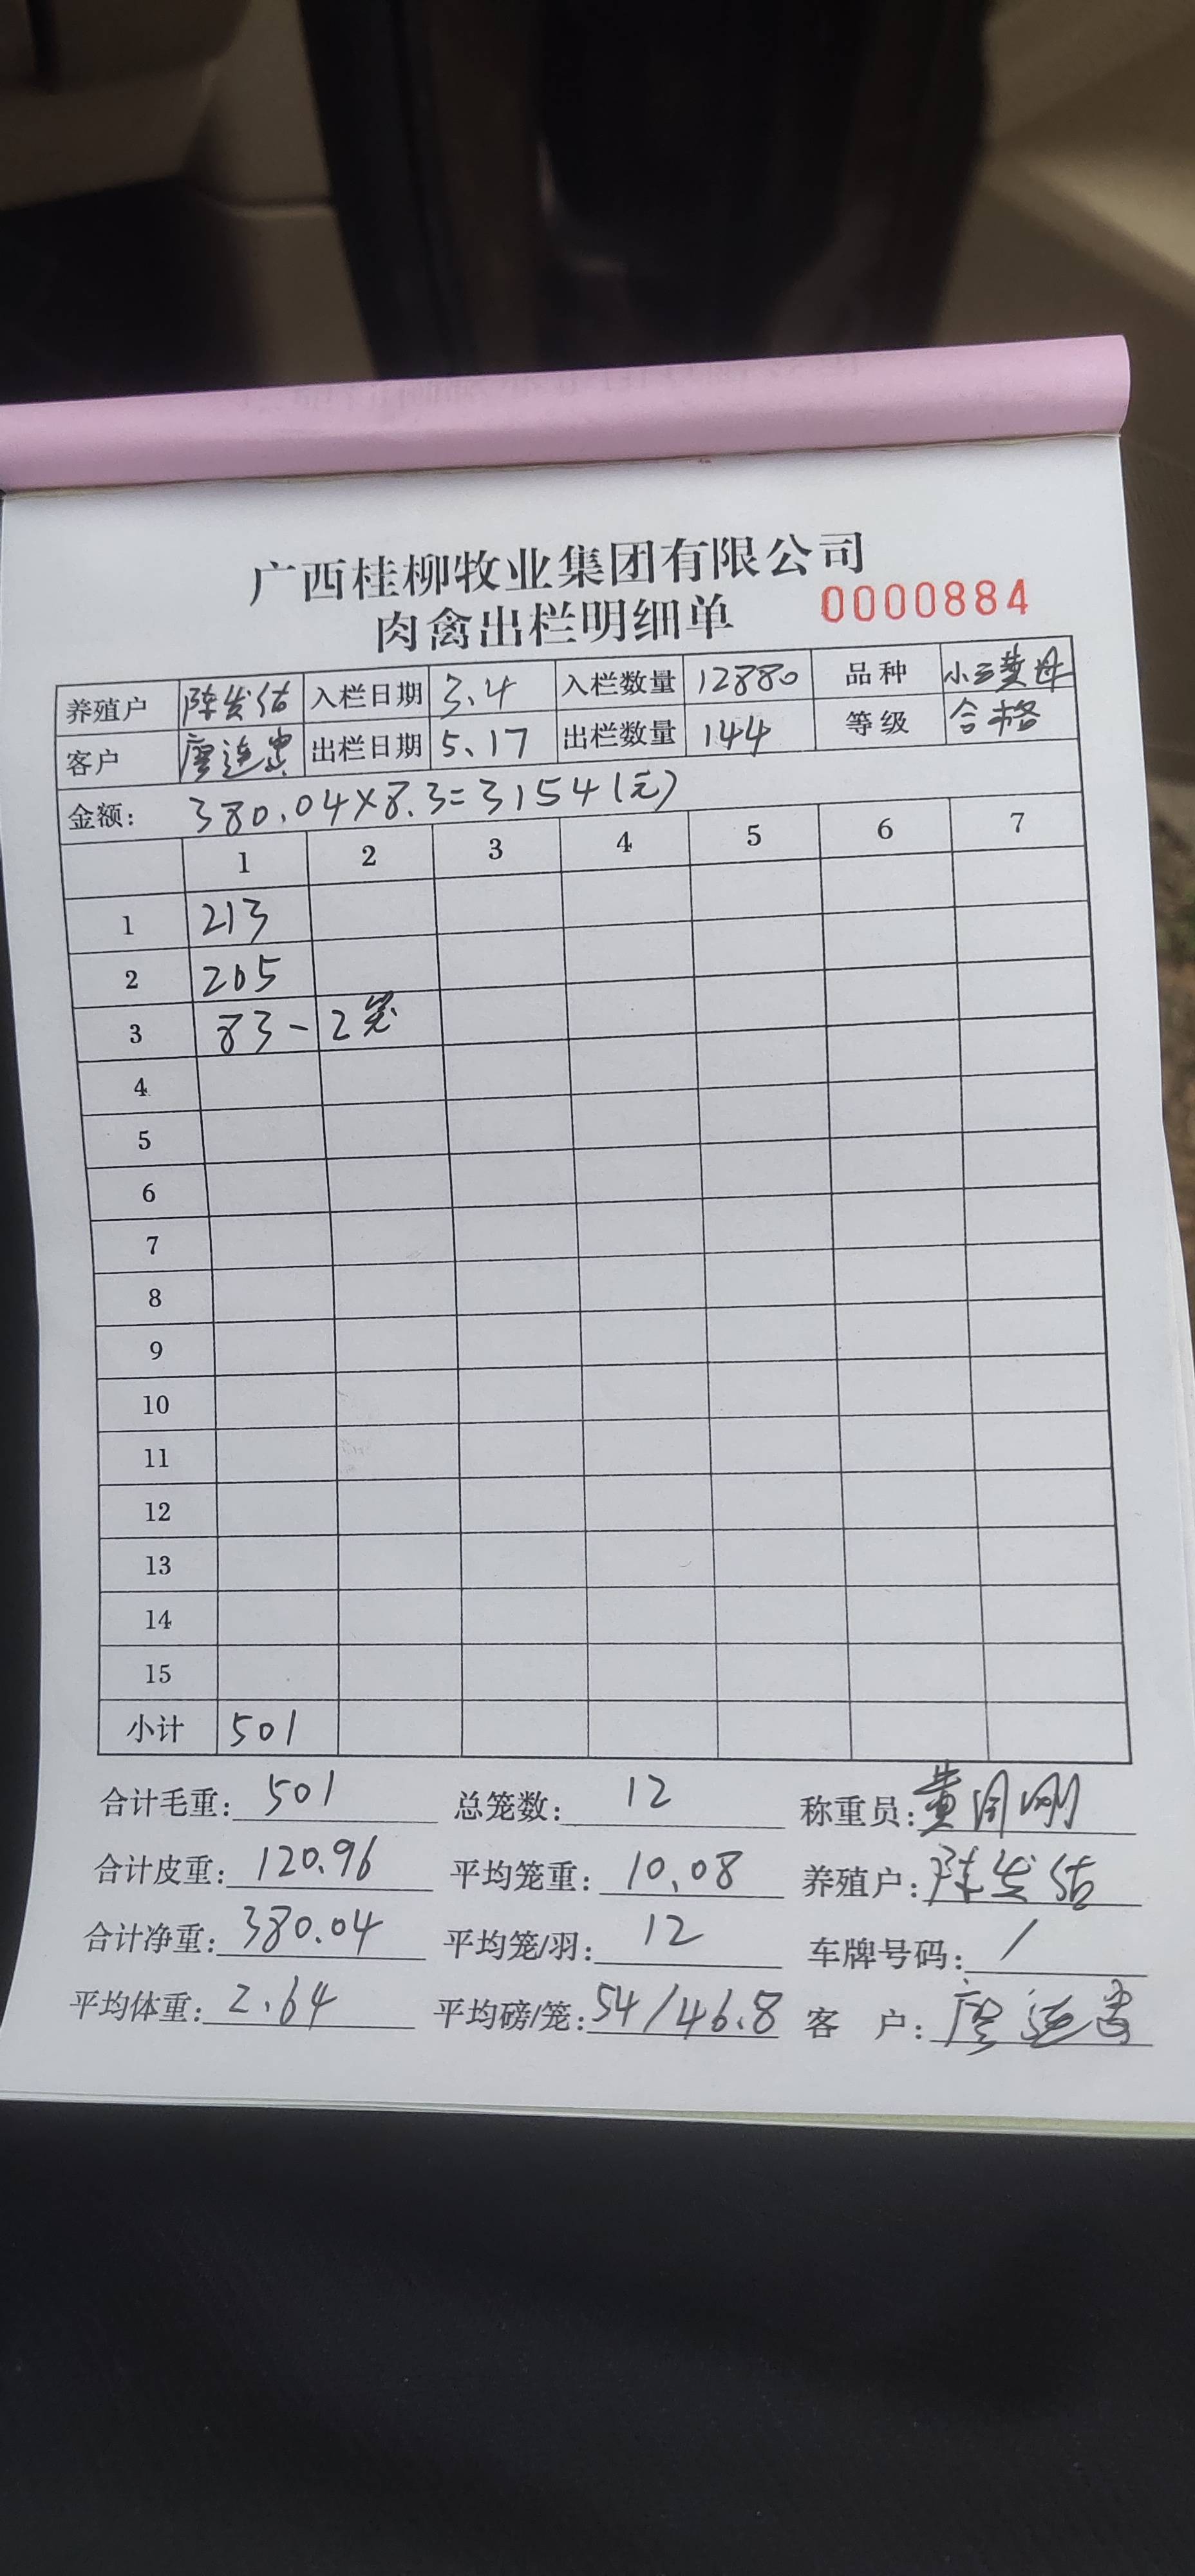 广西桂柳牧业集团有限公司
肉禽出栏明细单 0000884
养殖户 陈发佑 入栏日期 3.4 入栏数量 12880 品种 小三黄母
客户 廖连忠 出栏日期 5.17 出栏数量 144 等级 合格
金额: 380.04×8.3=3154(元)
1 2 3 4 5 6 7
1 213
2 205
3 83-2笼
4
5
6
7
8
9
10
11
12
13
14
15
小计 501
合计毛重: 501 总笼数: 12 称重员: 黄
合计皮重: 120.96 平均笼重: 10.08 养殖户: 陈发佑
合计净重: 380.04 平均笼/羽: 12 车牌号码: /
平均体重: 2.64 平均磅/笼: 54/46.8 客 户: 廖连忠